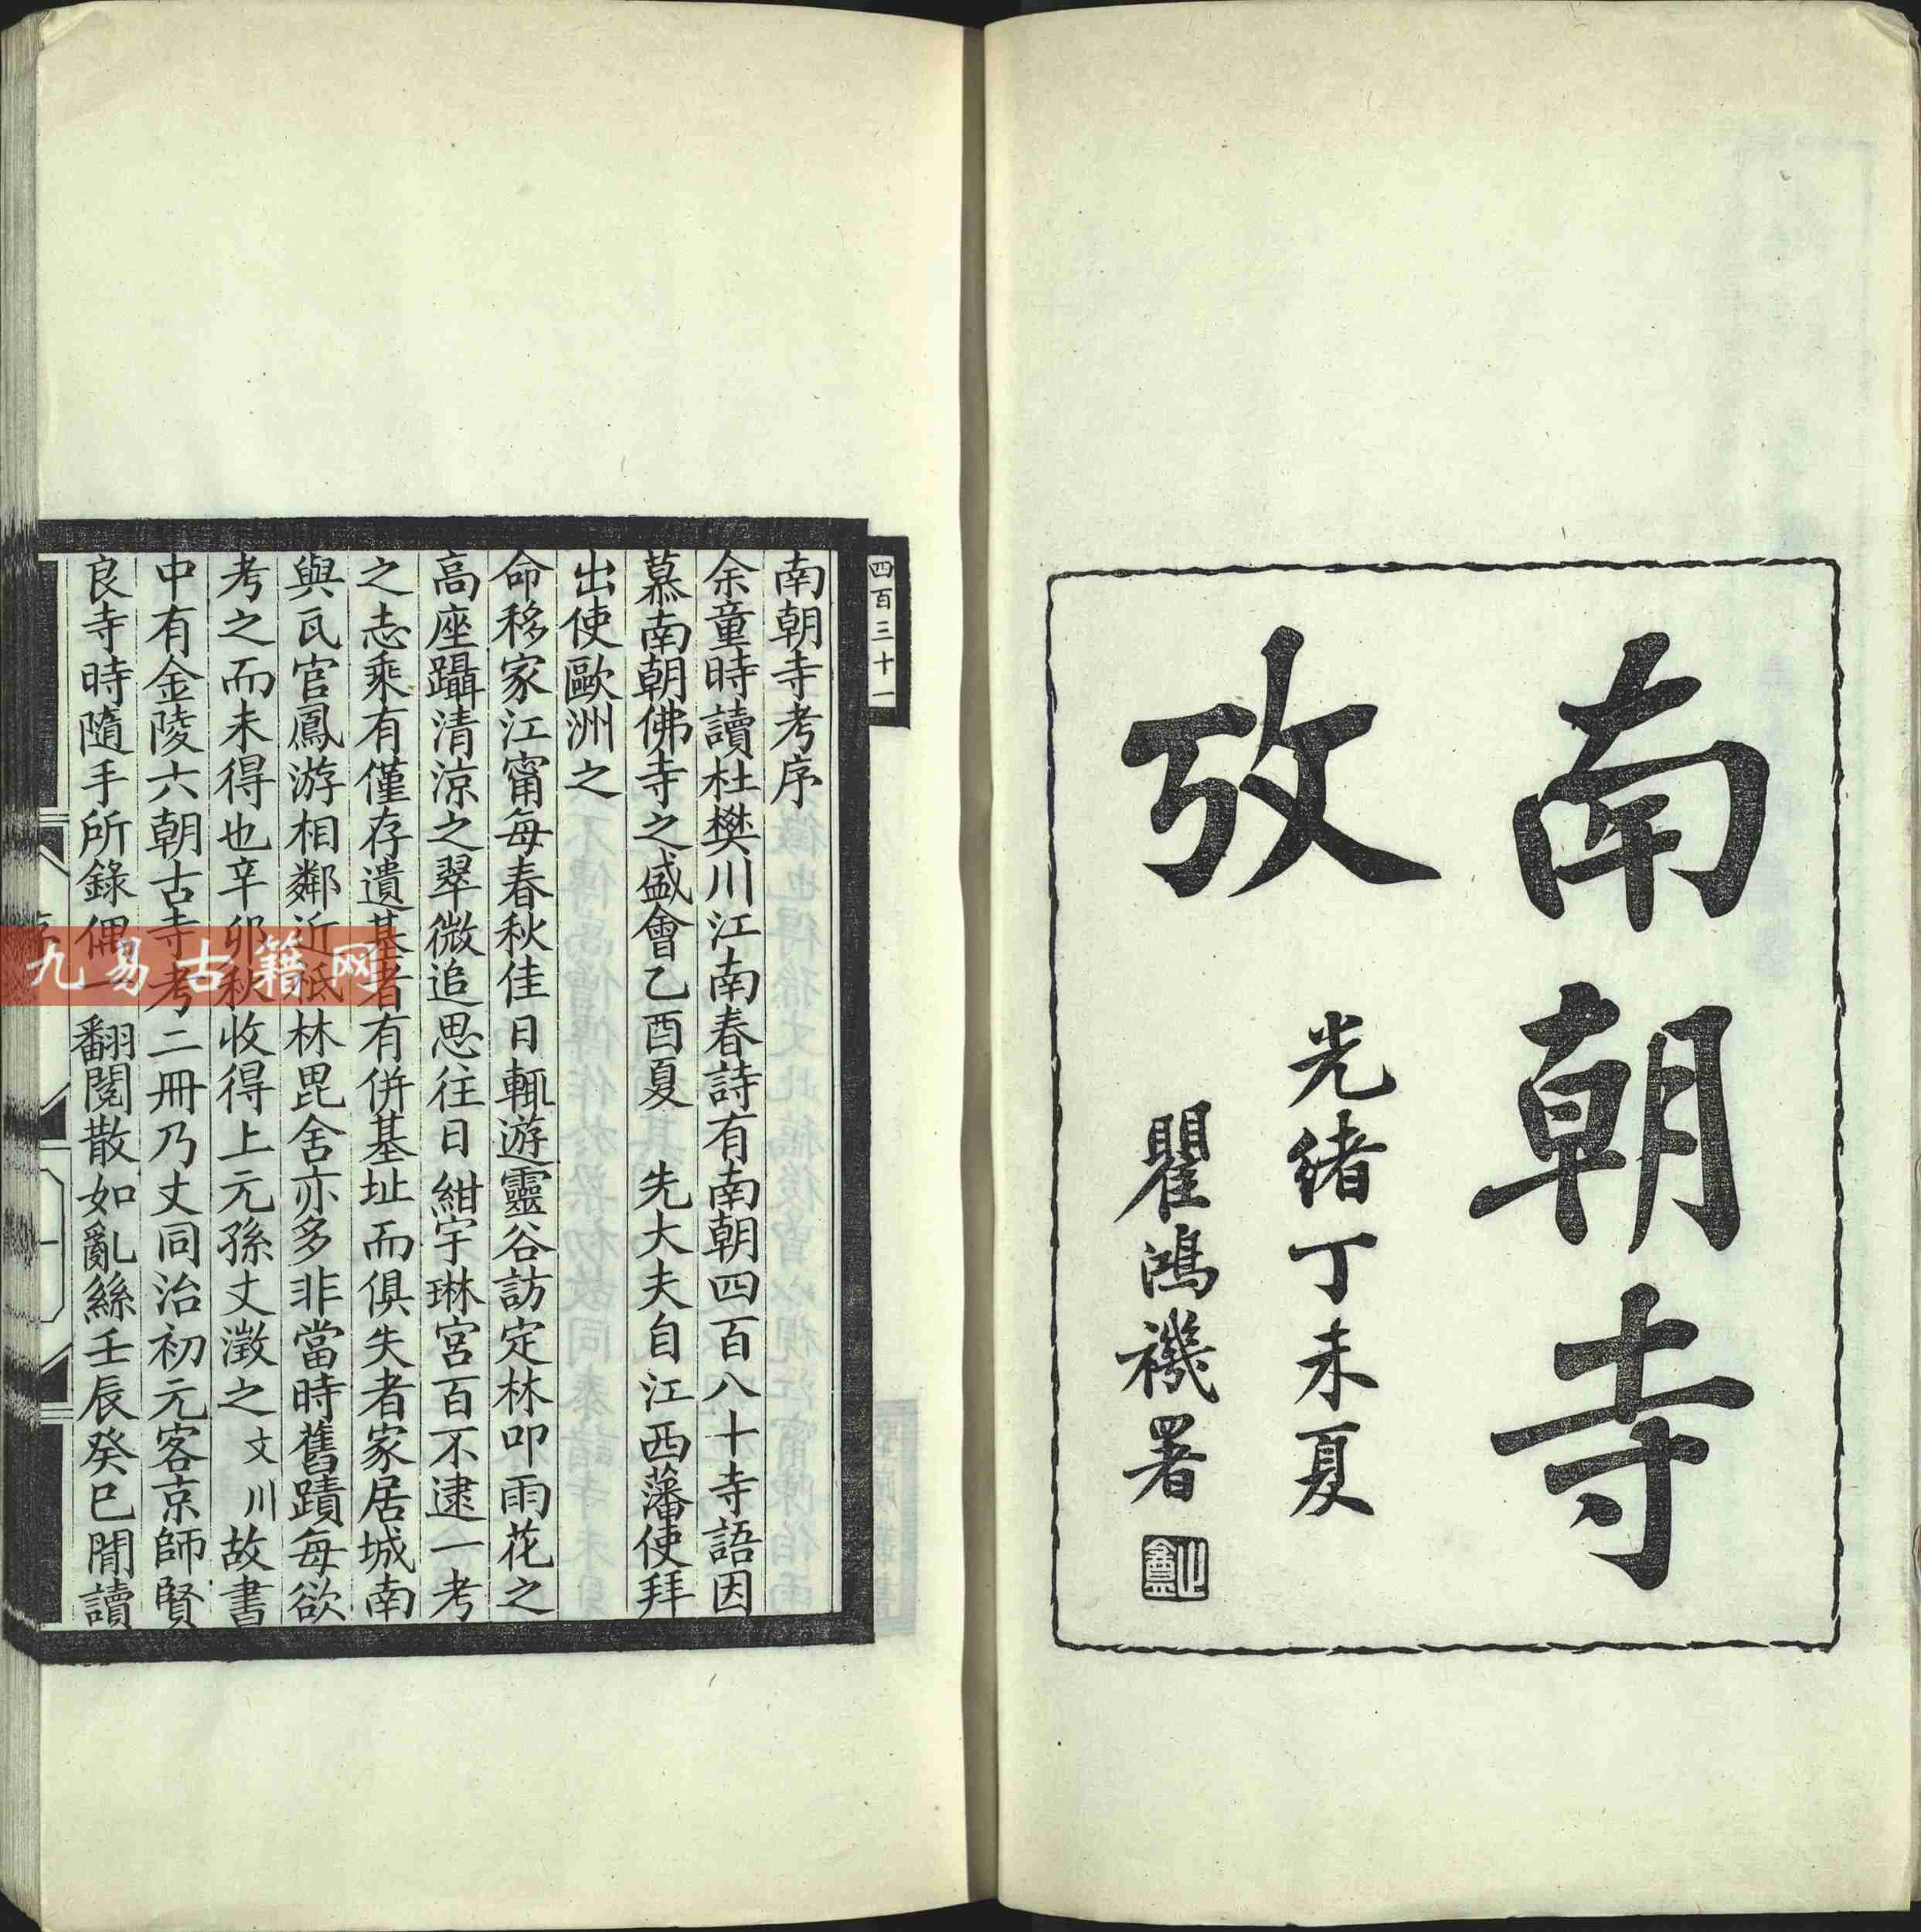 南朝寺
攷
光緒丁未夏
瞿鴻禨署
止盦
四百三十一
南朝寺考序
余童時讀杜樊川江南春詩有南朝四百八十寺語因
慕南朝佛寺之盛會乙酉夏 先大夫自江西藩使拜
出使歐洲之
命移家江甯每春秋佳日輒遊靈谷訪定林叩雨花之
高座躡清涼之翠微追思往日紺宇琳宮百不逮一考
之志乘有僅存遺基者有併基址而俱失者家居城南
與瓦官鳳游相鄰近祇林毘舍亦多非當時舊蹟每欲
考之而未得也辛卯秋收得上元孫丈澂之文川故書
中有金陵六朝古寺考二冊乃丈同治初元客京師賢
良寺時隨手所錄偶一翻閱散如亂絲壬辰癸巳閒讀
九易古籍网